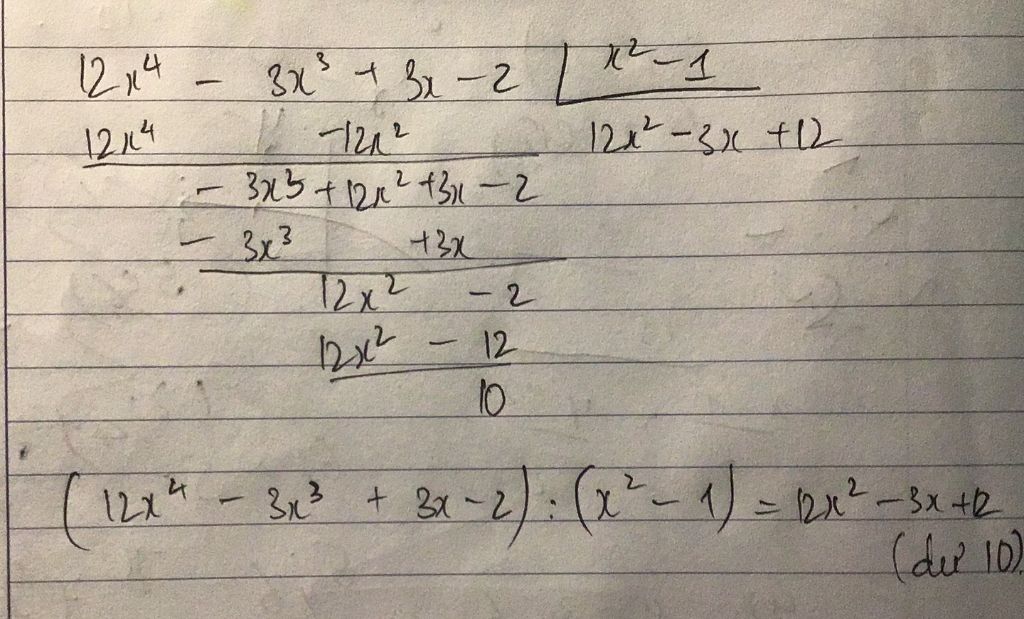 12x⁴ - 3x³ + 3x - 2 | x² - 1
12x⁴ -12x² 12x² - 3x + 12
- 3x³ + 12x² + 3x - 2
- 3x³ + 3x
12x² - 2
12x² - 12
10
(12x⁴ - 3x³ + 3x - 2) : (x² - 1) = 12x² - 3x + 12
(dư 10)